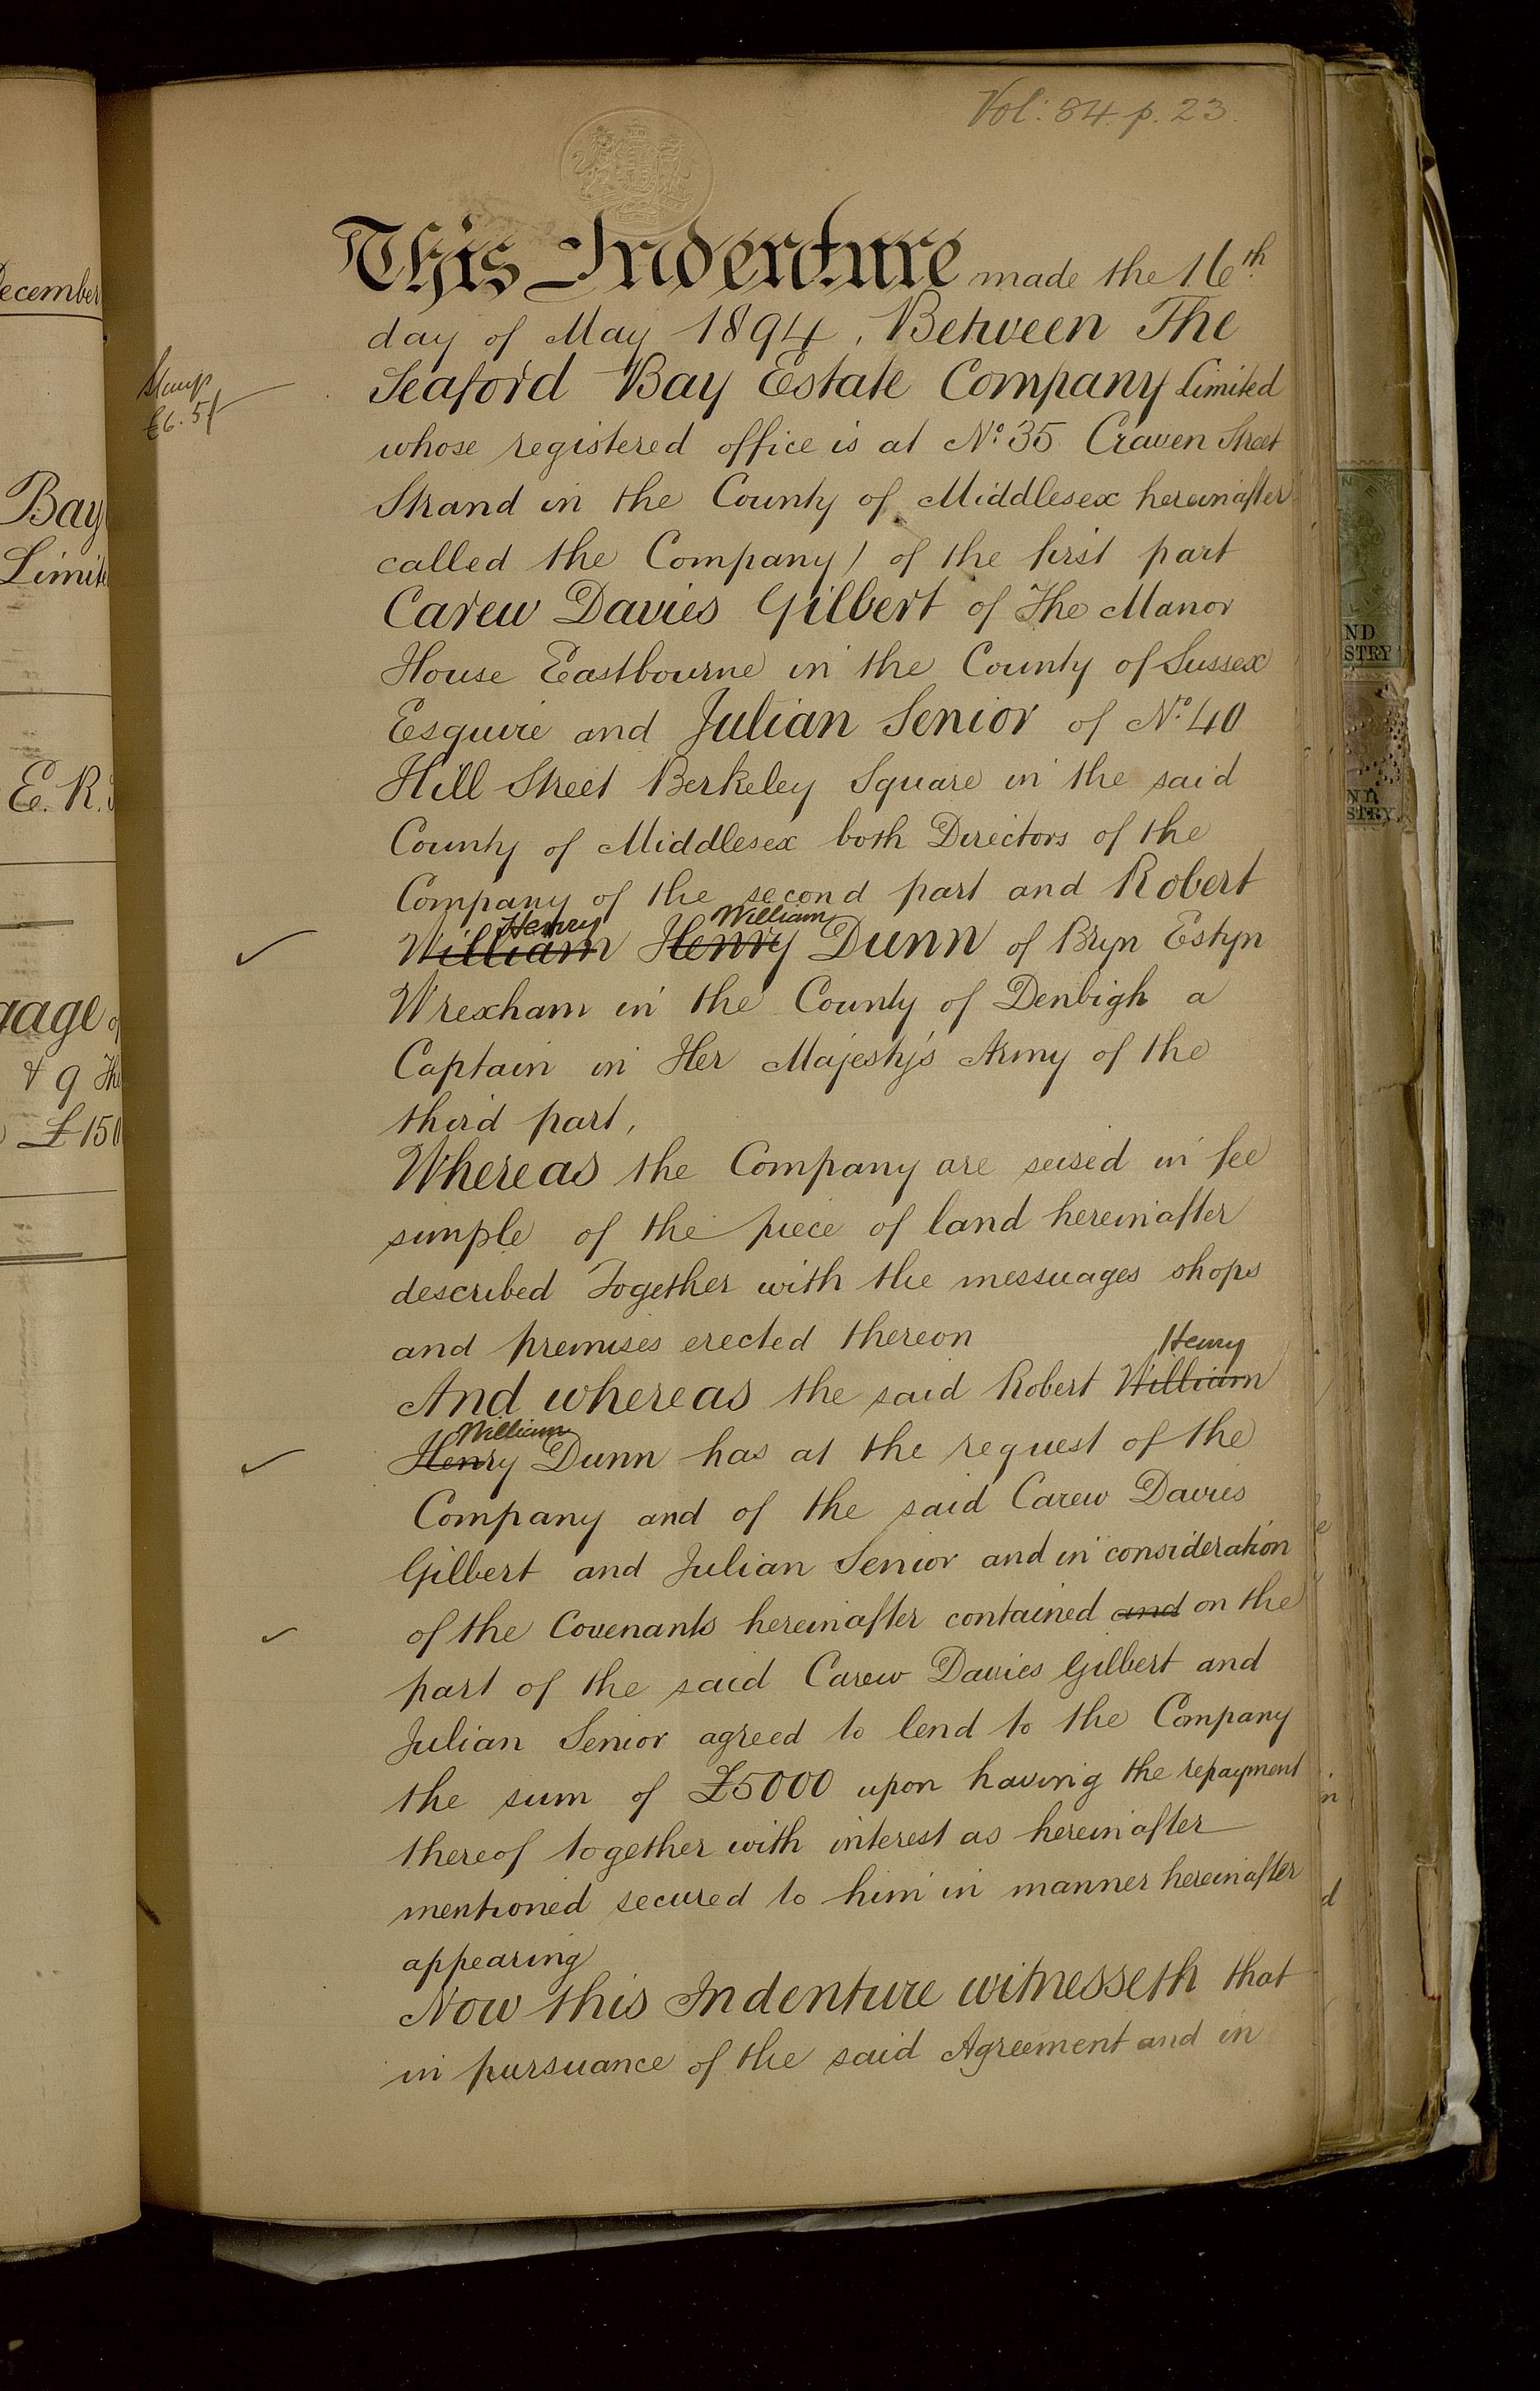 Vol: 84. p. 23.
This Indenture made the 16th
day of May 1894, Between The
Seaford Bay Estate Company Limited
Stamp
£6. 5/
whose registered office is at No. 35 Craven Street
Strand in the County of Middlesex hereinafter
called the Company) of the first part
Carew Davies Gilbert of The Manor
House Eastbourne in the County of Sussex
Esquire and Julian Senior of No. 40
Hill Street Berkeley Square in the said
County of Middlesex both Directors of the
Company of the second part and Robert
Henry William
William Henry Dunn of Bryn Estyn
Wrexham in the County of Denbigh a
Captain in Her Majesty's Army of the
third part,
Whereas the Company are seised in fee
simple of the piece of land hereinafter
described Together with the messuages shops
and premises erected thereon
Henry
And whereas the said Robert William
William
Henry Dunn has at the request of the
Company and of the said Carew Davies
Gilbert and Julian Senior and in consideration
of the Covenants hereinafter contained and on the
part of the said Carew Davies Gilbert and
Julian Senior agreed to lend to the Company
the sum of £5000 upon having the repayment
thereof together with interest as hereinafter
mentioned secured to him in manner hereinafter
appearing
Now this Indenture witnesseth that
in pursuance of the said Agreement and in
ecember
Bay
Limite
E. R.
gage of
& 9 The
£150
ND
STRY
ND
STRY
e
in
d